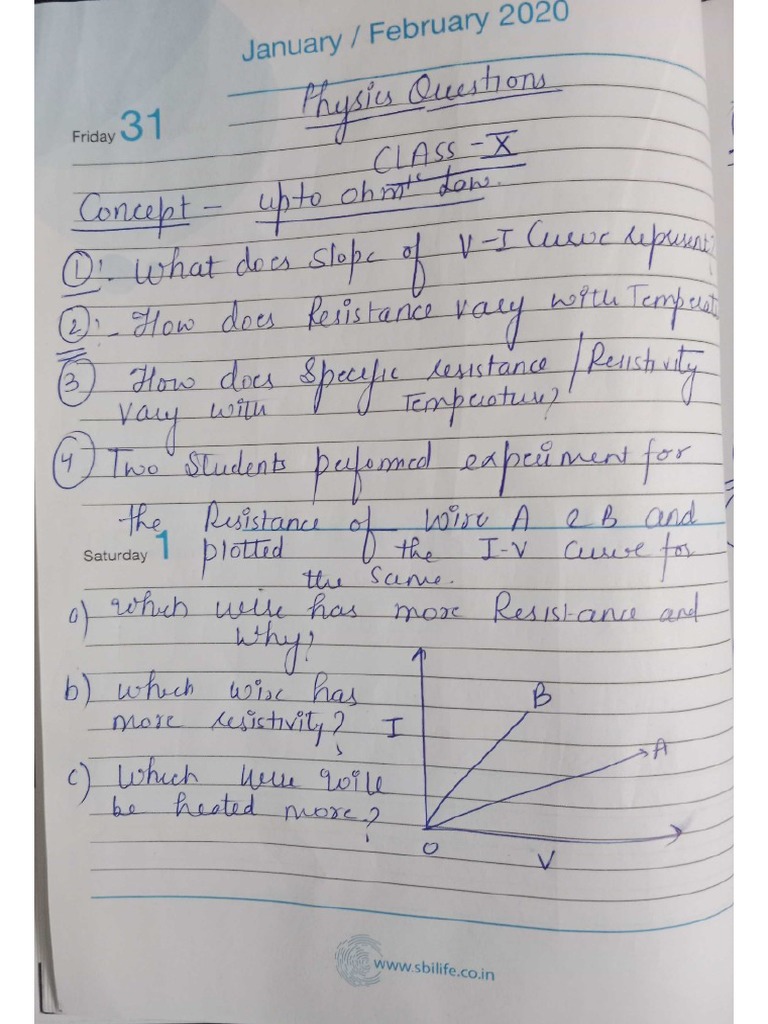 January / February 2020
Physics Questions
Friday 31
CLASS - X
Concept - upto ohm's Law.
1:- What does slope of V-I Curve represent?
2:- How does Resistance vary with Temperat
3 How does Specific resistance / Resistivity
vary with Temperature?
4 Two Students performed experiment for
the Resistance of wire A & B and
Saturday 1 plotted the I-V curve for
the same.
a) Which wire has more Resistance and
Why?
b) Which wire has
more resistivity?
c) Which wire will
be heated more?
I
B
A
O
V
www.sbilife.co.in